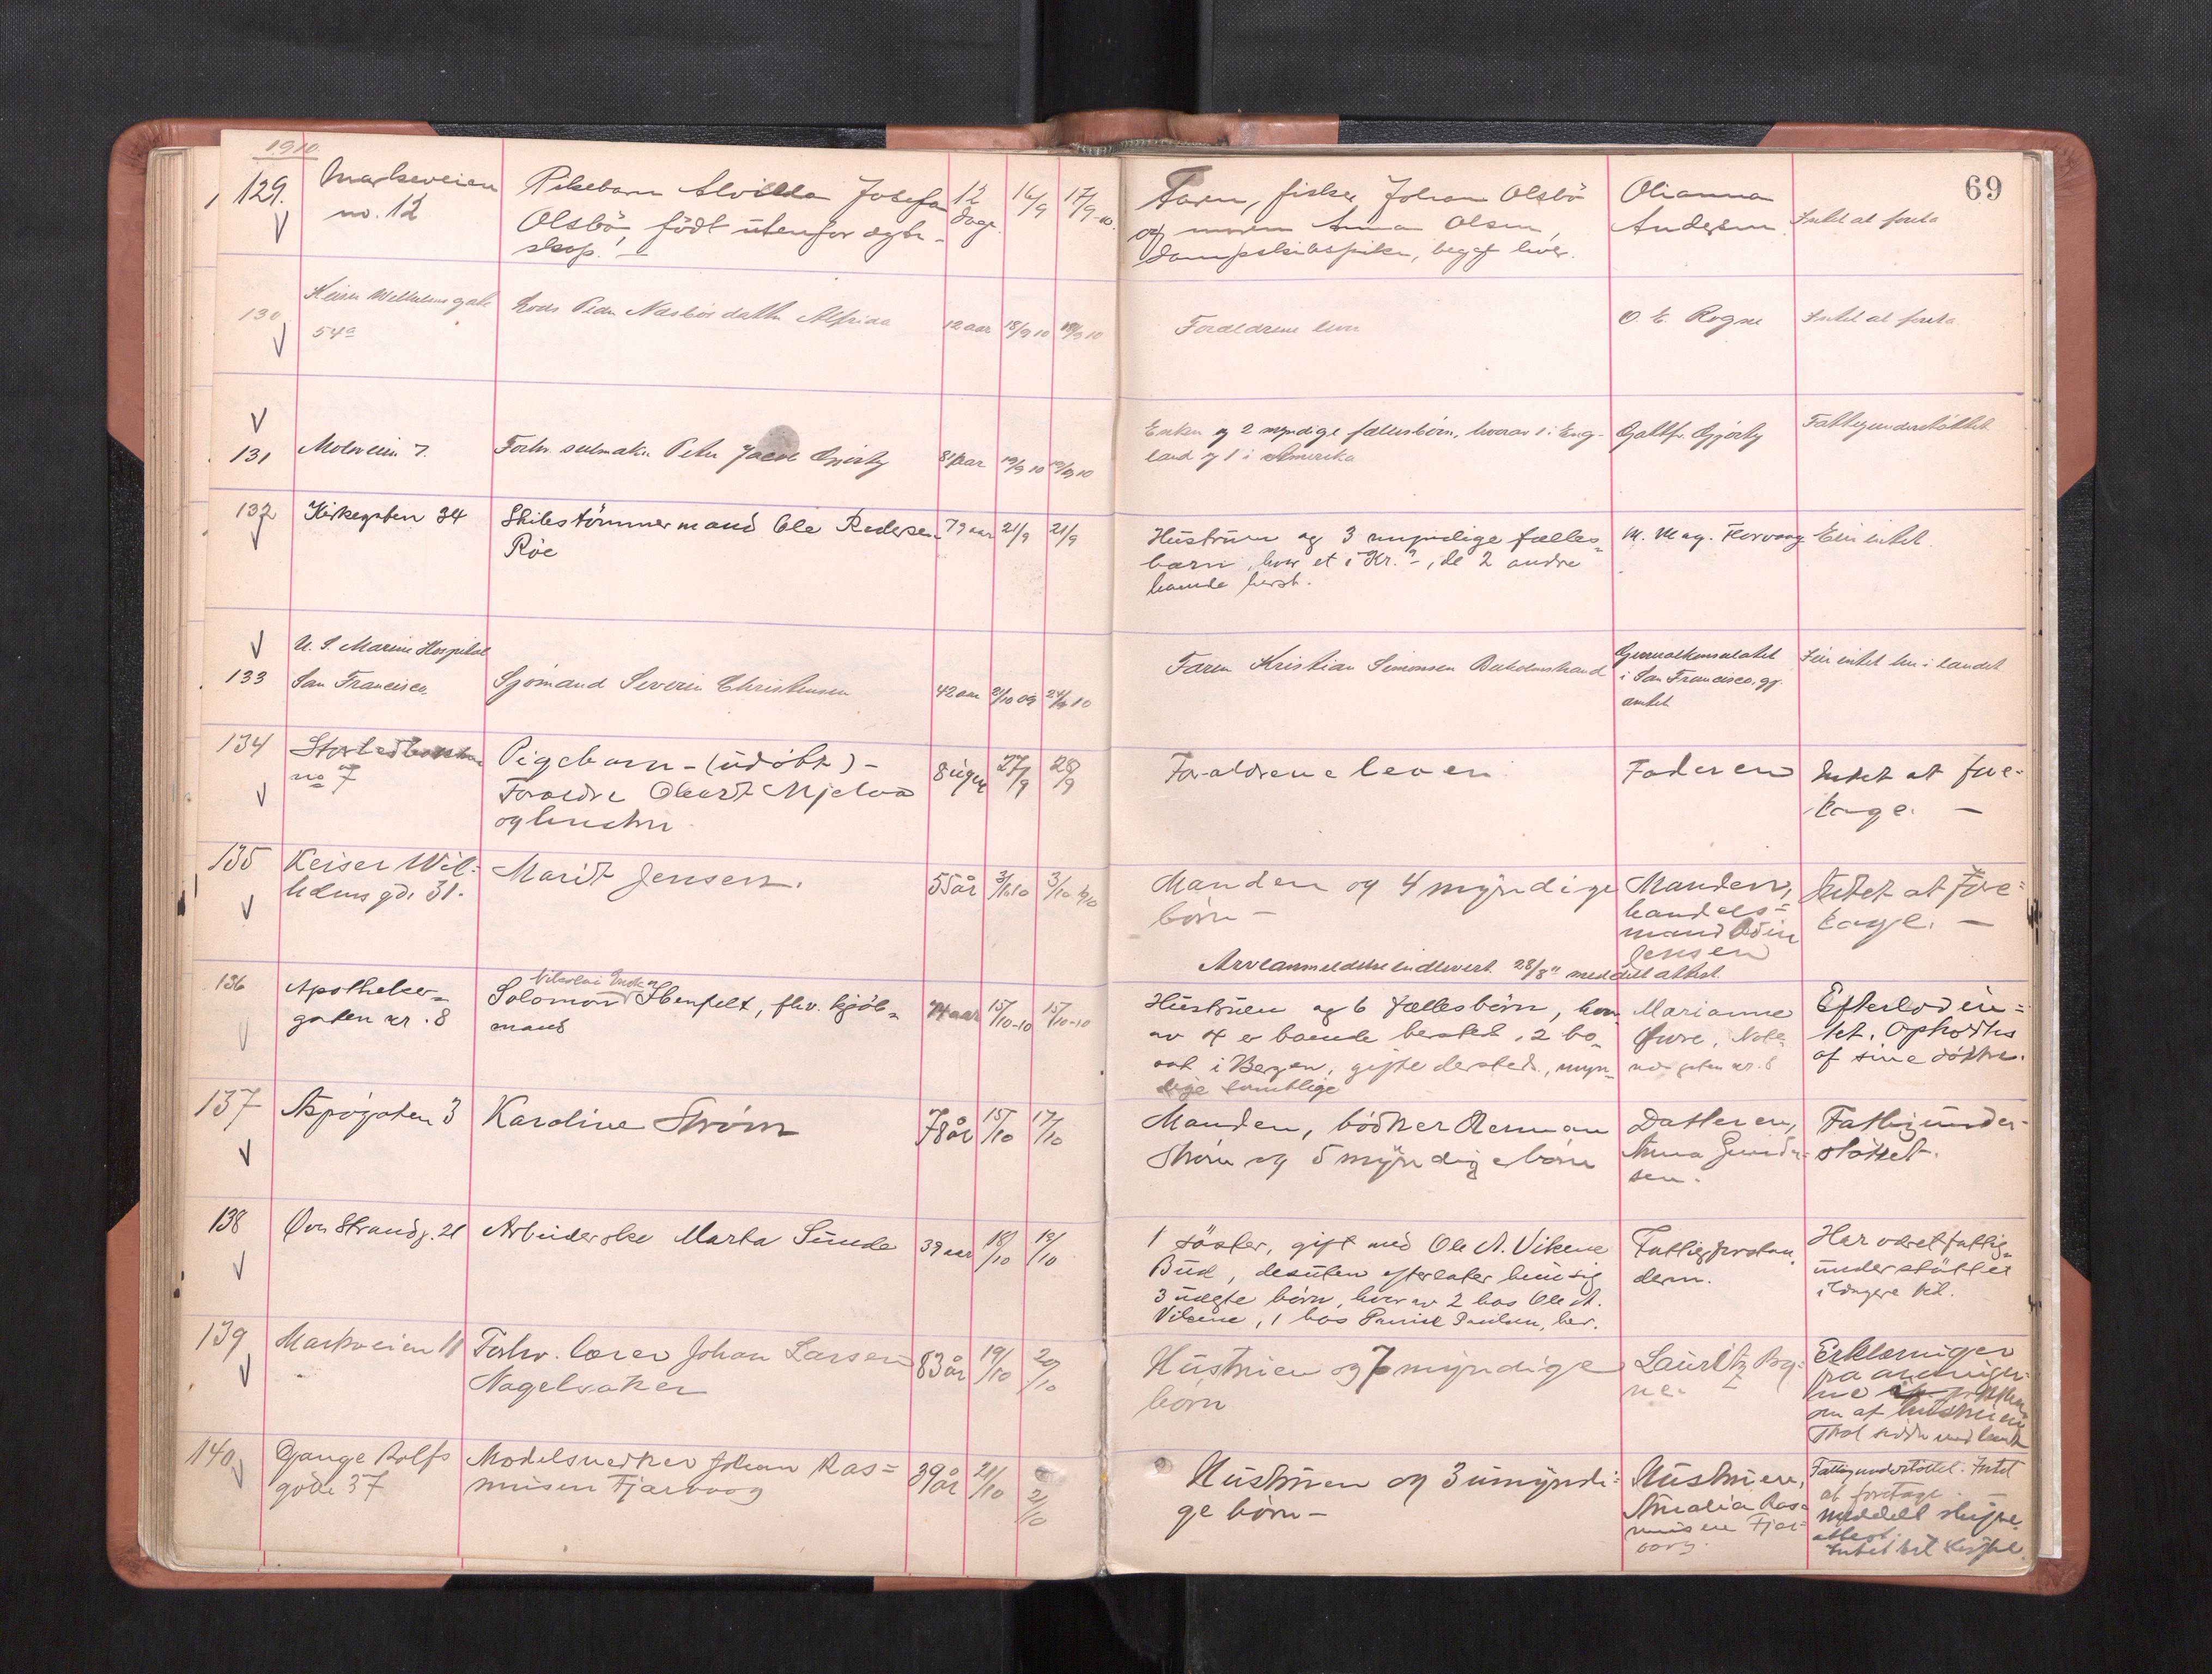 1910.
69
129. Markeveien
no. 12
Pikebarn Alvilda Josefa
Olsbö, födt utenfor egte-
skap. -
12
dage.
16/9
17/9-10.
Faren, fisker Johan Olsbö
og moren Anna Olsen,
dampskibspike, begge lever.
Olianna
Andersen
Intet at foreta
130
Keiser Wilhelms gate
54a
Lods Peder Næsbös datter Alfrida
12 aar
18/9 10
19/9 10
Forældrene lever
O. E. Rogne
Intet at foreta
131
Molovein 7.
Forhv. seilmaker Peter Jacob Gjörtz
81 aar
19/9 10
19/9 10
Enken og 2 myndige fællesbörn, hvorav 1 i Eng-
land og 1 i Amerika
Gjörtz
Fattigunderstöttet
132
Kirkegaten 34
Skibstömmermand Ole Pedersen
Röe
79 aar
21/9
21/9
Hustruen og 3 myndige fælles-
barn, hvor et i Kr.a, de 2 andre
boende herst.
M. Mag. Korvaag
Eier intet.
133
U. S. Marine Hospital
San Francisco.
Sjömand Severin Christensen
42 aar
21/10 09
24/9 10
Faren Kristian Simonsen
Generalkonsulatet
i San Francisco, gj.
amtet
Eier intet her i landet
134
no 7
Pigebarn - (udöbt) -
Forældre Olaert Mjelva
og hustru
8 uger
27/9
28/9
Forældrene lever
Faderen
Intet at fore-
tage. -
135
Keiser Wil-
helms gd. 31.
Marit Jensen.
55 år
3/10 10
3/10 1910
Manden og 4 myndige
börn -
Manden,
handels-
mand Odin
Jensen
Intet at fore-
tage. -
Arveanmeldelse indlevert 28/8 11 meddelt attest.
136
Apotheker-
gaten nr. 8
Nikolai Endre
Solomon Ibenfelt, fhv. kjöb-
mand
74 aar
15/10-10
15/10-10
Hustruen og 6 fællesbörn, hvor
av 4 er boende hersted, 2 bo-
sat i Bergen, gifte dersted, myn-
dige samtlige
Marianne
Öwre, Note-
nesgaten nr. 8
Efterlod in-
tet. Opholdtes
af sine döttre.
137
Aspögaten 3
Karoline Ström
78 år
15/10
17/10
Manden, bödker Herman
Ström og 5 myndige börn
Datteren,
Anna Gunder-
sen.
Fattigunder-
stöttet.
138
Övre Strandg. 21
Arbeiderske Marta Sunde
39 aar
18/10
19/10
1 söster, gift med Ole A. Vikene
Bud, desuten efterlater hun sig
3 uegte börn, hvorav 2 hos Ole A.
Vikene, 1 hos Paulsen, her.
Fattigforstan-
deren.
Har været fattig-
understöttet
i længere tid.
139
Markveien 11
Forhv. lærer Johan Larsen
Nagelsaker
83 år
19/10
20/10
Hustruen og 7 myndige
börn
Lauritz Rog-
ne.
Erklæringer
fra arvinger-
ne
om at hustruen
skal sidde med boet
140
Gange Rolfs
gade 37
Modelsnedker Johan Ras-
musen Fjærvoog
39 år
21/10
21/10
Hustruen og 3 umyndi-
ge börn -
Hustruen,
Amalia Ras-
musen Fjær-
voog.
Fattigunderstöttet. Intet
at foretage
meddelt skifte-
attest.